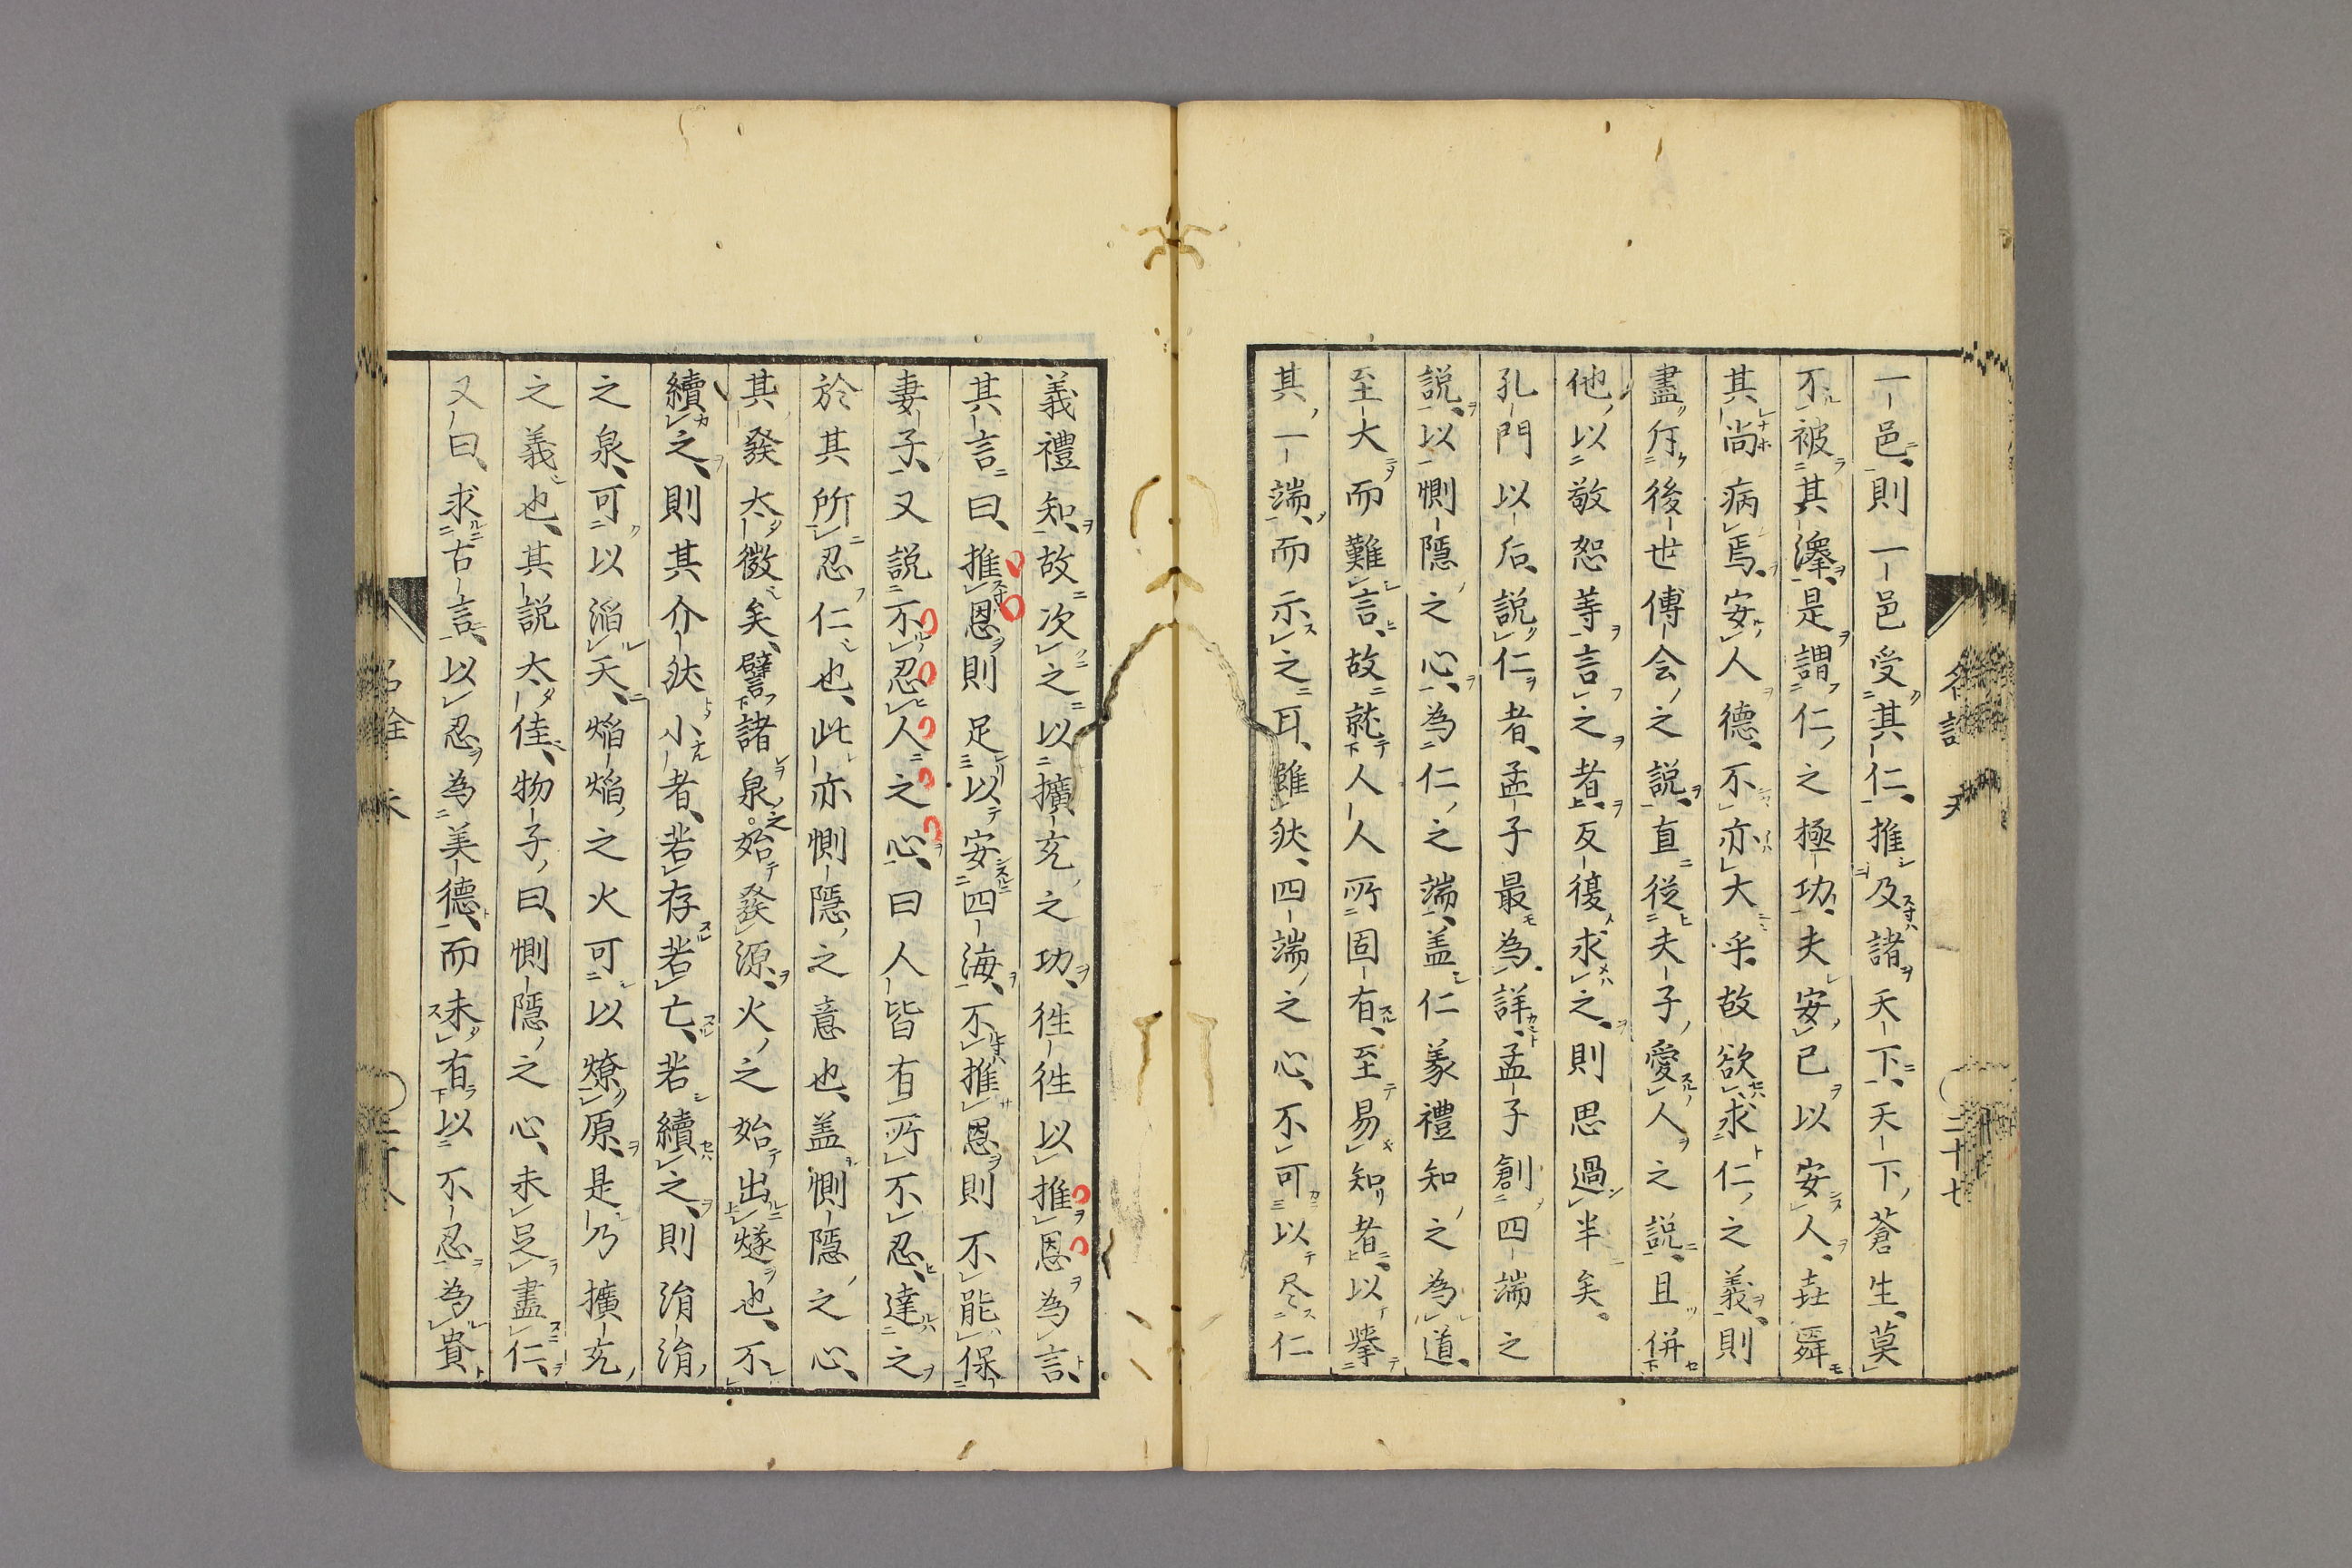 一邑、則一邑受其仁、推及諸天下、天下蒼生、莫
不被其澤、是謂仁之極功、夫安己以安人、尭舜
其尚病焉、安人德、不亦大乎、故欲求仁之義、則
盡斥後世傅会之説、直從夫子愛人之説、且併
他以敬恕等言之者、反復求之、則思過半矣。
孔門以后、説仁者、孟子最為詳、孟子創四端之
説、以惻隱之心、為仁之端、盖仁義禮知之為道、
至大而難言、故就人人所固有、至易知者、以擧
其一端、而示之耳、雖然、四端之心、不可以尽仁
義禮知、故次之以擴充之功、徃徃以推恩為言、
其言曰、推恩則足以安四海、不推恩則不能保
妻子、又説不忍人之心、曰人皆有所不忍、達之
於其所忍仁也、此亦惻隱之意也、盖惻隱之心、
其發太微矣、譬諸泉之始發源、火之始出燧也、不
續之、則其介然小者、若存若亡、若續之、則涓涓
之泉、可以滔天、焔焔之火可以燎原、是乃擴充
之義也、其説太佳、物子曰、惻隱之心、未足盡仁、
又曰、求古言、以忍為美德、而未有以不忍為貴
二十七